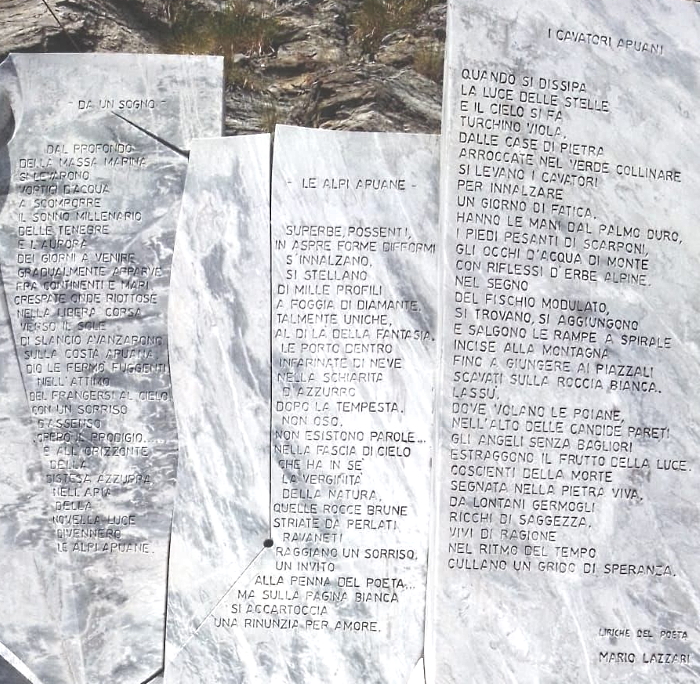 - DA UN SOGNO -
DAL PROFONDO
DELLA MASSA MARINA
SI LEVARONO
VORTICI D'ACQUA
A SCOMPORRE
IL SONNO MILLENARIO
DELLE TENEBRE
E L'AURORA
DEI GIORNI A VENIRE
GRADUALMENTE APPARVE
FRA CONTINENTI E MARI
CRESPATE ONDE RIOTTOSE
NELLA LIBERA CORSA
VERSO IL SOLE
DI SLANCIO AVANZARONO
SULLA COSTA APUANA
DIO LE FERMO FUGGENTI
NELL'ATTIMO
DEL FRANGERSI AL CIELO
CON UN SORRISO
D'ASSENSO
CREO IL PRODIGIO...
E ALL'ORIZZONTE
DELLA
DISTESA AZZURRA
NELL'ARIA
DELLA
NOVELLA LUCE
DIVENNERO
LE ALPI APUANE.
- LE ALPI APUANE -
SUPERBE, POSSENTI,
IN ASPRE FORME DIFFORMI
S'INNALZANO,
SI STELLANO
DI MILLE PROFILI
A FOGGIA DI DIAMANTE.
TALMENTE UNICHE,
AL DI LA DELLA FANTASIA.
LE PORTO DENTRO
INFARINATE DI NEVE
NELLA SCHIARITA
D'AZZURRO
DOPO LA TEMPESTA.
NON OSO.
NON ESISTONO PAROLE...
NELLA FASCIA DI CIELO
CHE HA IN SE
LA VERGINITA
DELLA NATURA,
QUELLE ROCCE BRUNE
STRIATE DA PERLATI
RAVANETI
RAGGIANO UN SORRISO,
UN INVITO
ALLA PENNA DEL POETA...
MA SULLA PAGINA BIANCA
SI ACCARTOCCIA
UNA RINUNZIA PER AMORE.
I CAVATORI APUANI
QUANDO SI DISSIPA
LA LUCE DELLE STELLE
E IL CIELO SI FA
TURCHINO VIOLA,
DALLE CASE DI PIETRA
ARROCCATE NEL VERDE COLLINARE
SI LEVANO I CAVATORI
PER INNALZARE
UN GIORNO DI FATICA.
HANNO LE MANI DAL PALMO DURO,
I PIEDI PESANTI DI SCARPONI,
GLI OCCHI D'ACQUA DI MONTE
CON RIFLESSI D'ERBE ALPINE.
NEL SEGNO
DEL FISCHIO MODULATO,
SI TROVANO, SI AGGIUNGONO
E SALGONO LE RAMPE A SPIRALE
INCISE ALLA MONTAGNA
FINO A GIUNGERE AI PIAZZALI
SCAVATI SULLA ROCCIA BIANCA.
LASSU',
DOVE VOLANO LE POIANE,
NELL'ALTO DELLE CANDIDE PARETI
GLI ANGELI SENZA BAGLIORI
ESTRAGGONO IL FRUTTO DELLA LUCE.
COSCIENTI DELLA MORTE
SEGNATA NELLA PIETRA VIVA.
DA LONTANI GERMOGLI
RICCHI DI SAGGEZZA,
VIVI DI RAGIONE
NEL RITMO DEL TEMPO
CULLANO UN GRIDO DI SPERANZA.
LIRICHE DEL POETA
MARIO LAZZARI